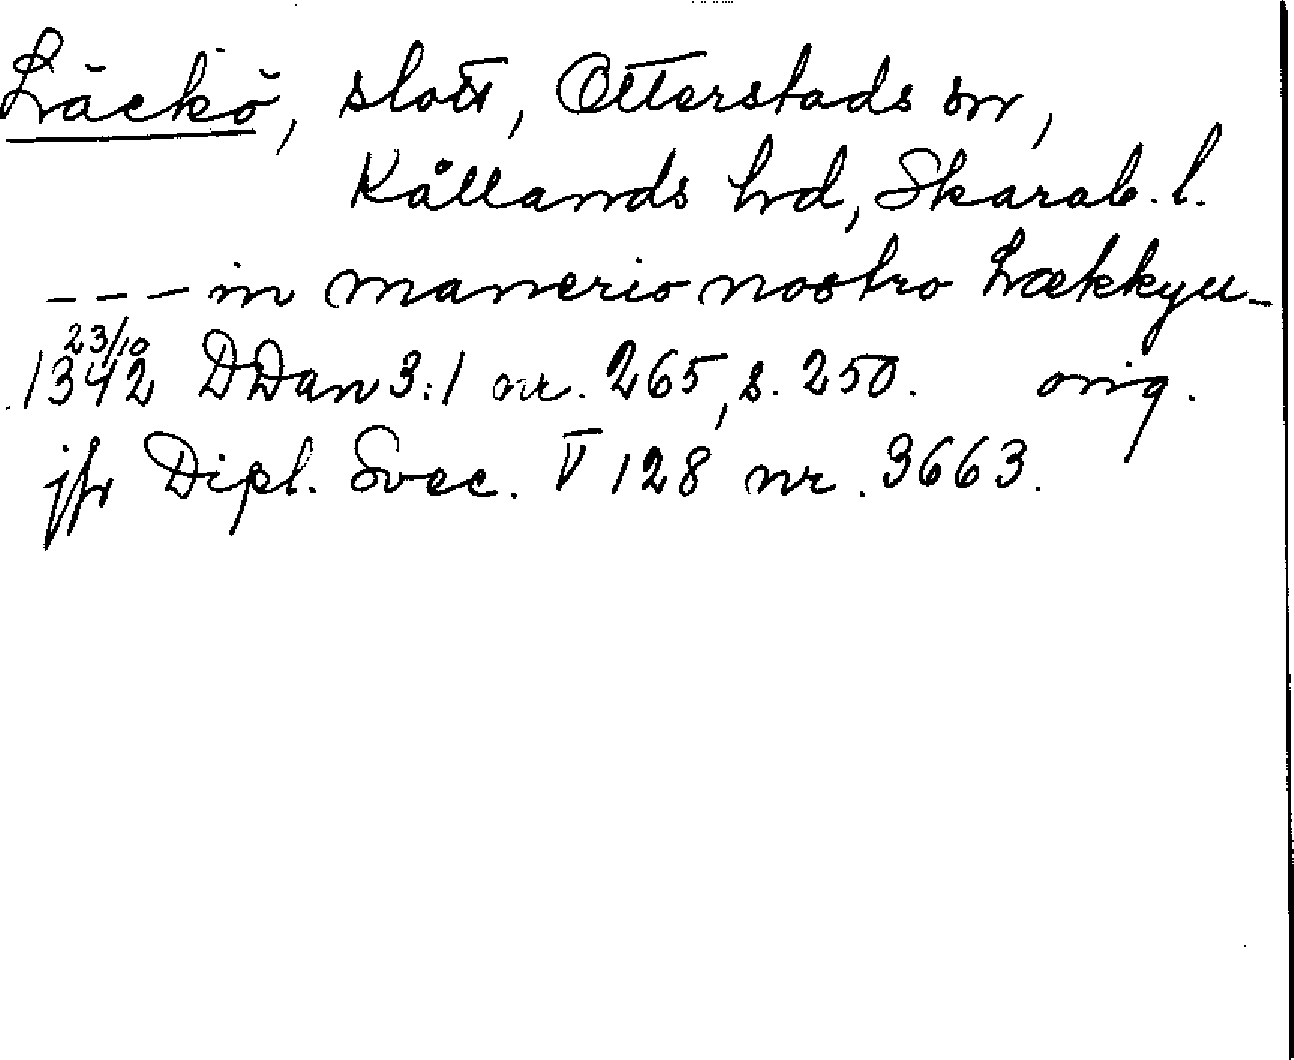 Läckö, slott, Otterstads sn,
Kållands hd, Skarab. l.
--- in manerio nostro Lækkyu_
23/10
1342 DDan 3:1 nr. 265, s. 250. orig.
jfr Dipl. Svec. V 128 nr. 3663.